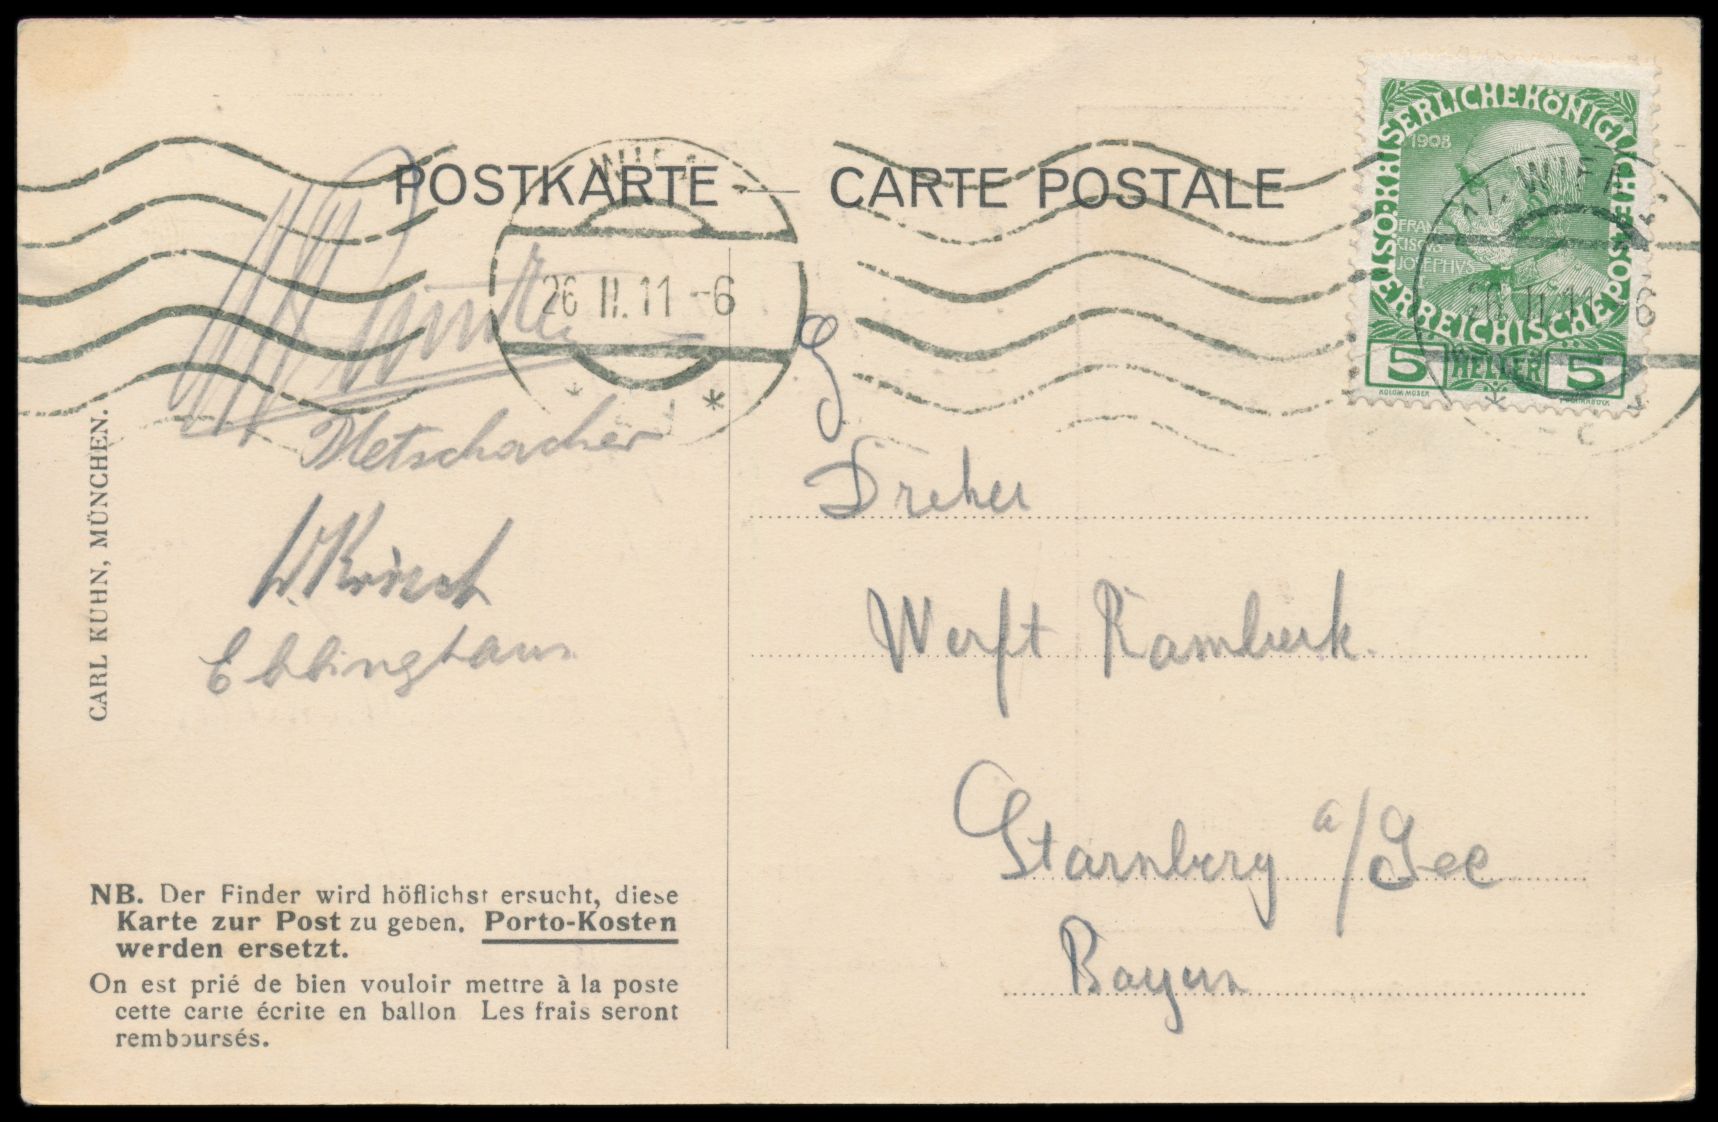 POSTKARTE — CARTE POSTALE
WIEN
26 II. 11 -6
17. WIEN
26 II 11 -6
KAISERLICHE KÖNIGLICHE ÖSTERREICHISCHE POST
1908
FRAN
CISCVS
JOSEPHVS
5 HELLER 5
KOLOM. MOSER
Metschacher
Ebbinghaus
CARL KUHN, MÜNCHEN.
Dreher
Werft Rambeck.
Starnberg a/See
Bayern
NB. Der Finder wird höflichst ersucht, diese
Karte zur Post zu geben. Porto-Kosten
werden ersetzt.
On est prié de bien vouloir mettre à la poste
cette carte écrite en ballon Les frais seront
remboursés.